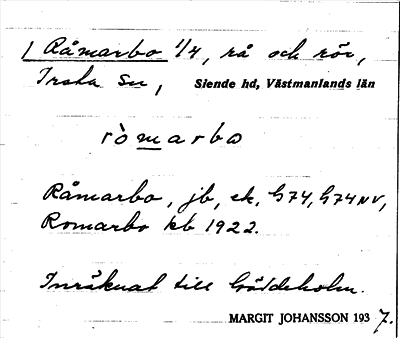 1 Råmarbo 1/4, rå och rör,
Irsta Sn, Siende hd, Västmanlands län
ròmarbo
Råmarbo, jb, ek, G74, G74NV,
Romarbo kb 1922.
Inräknat till Gäddeholm.
MARGIT JOHANSSON 1937.